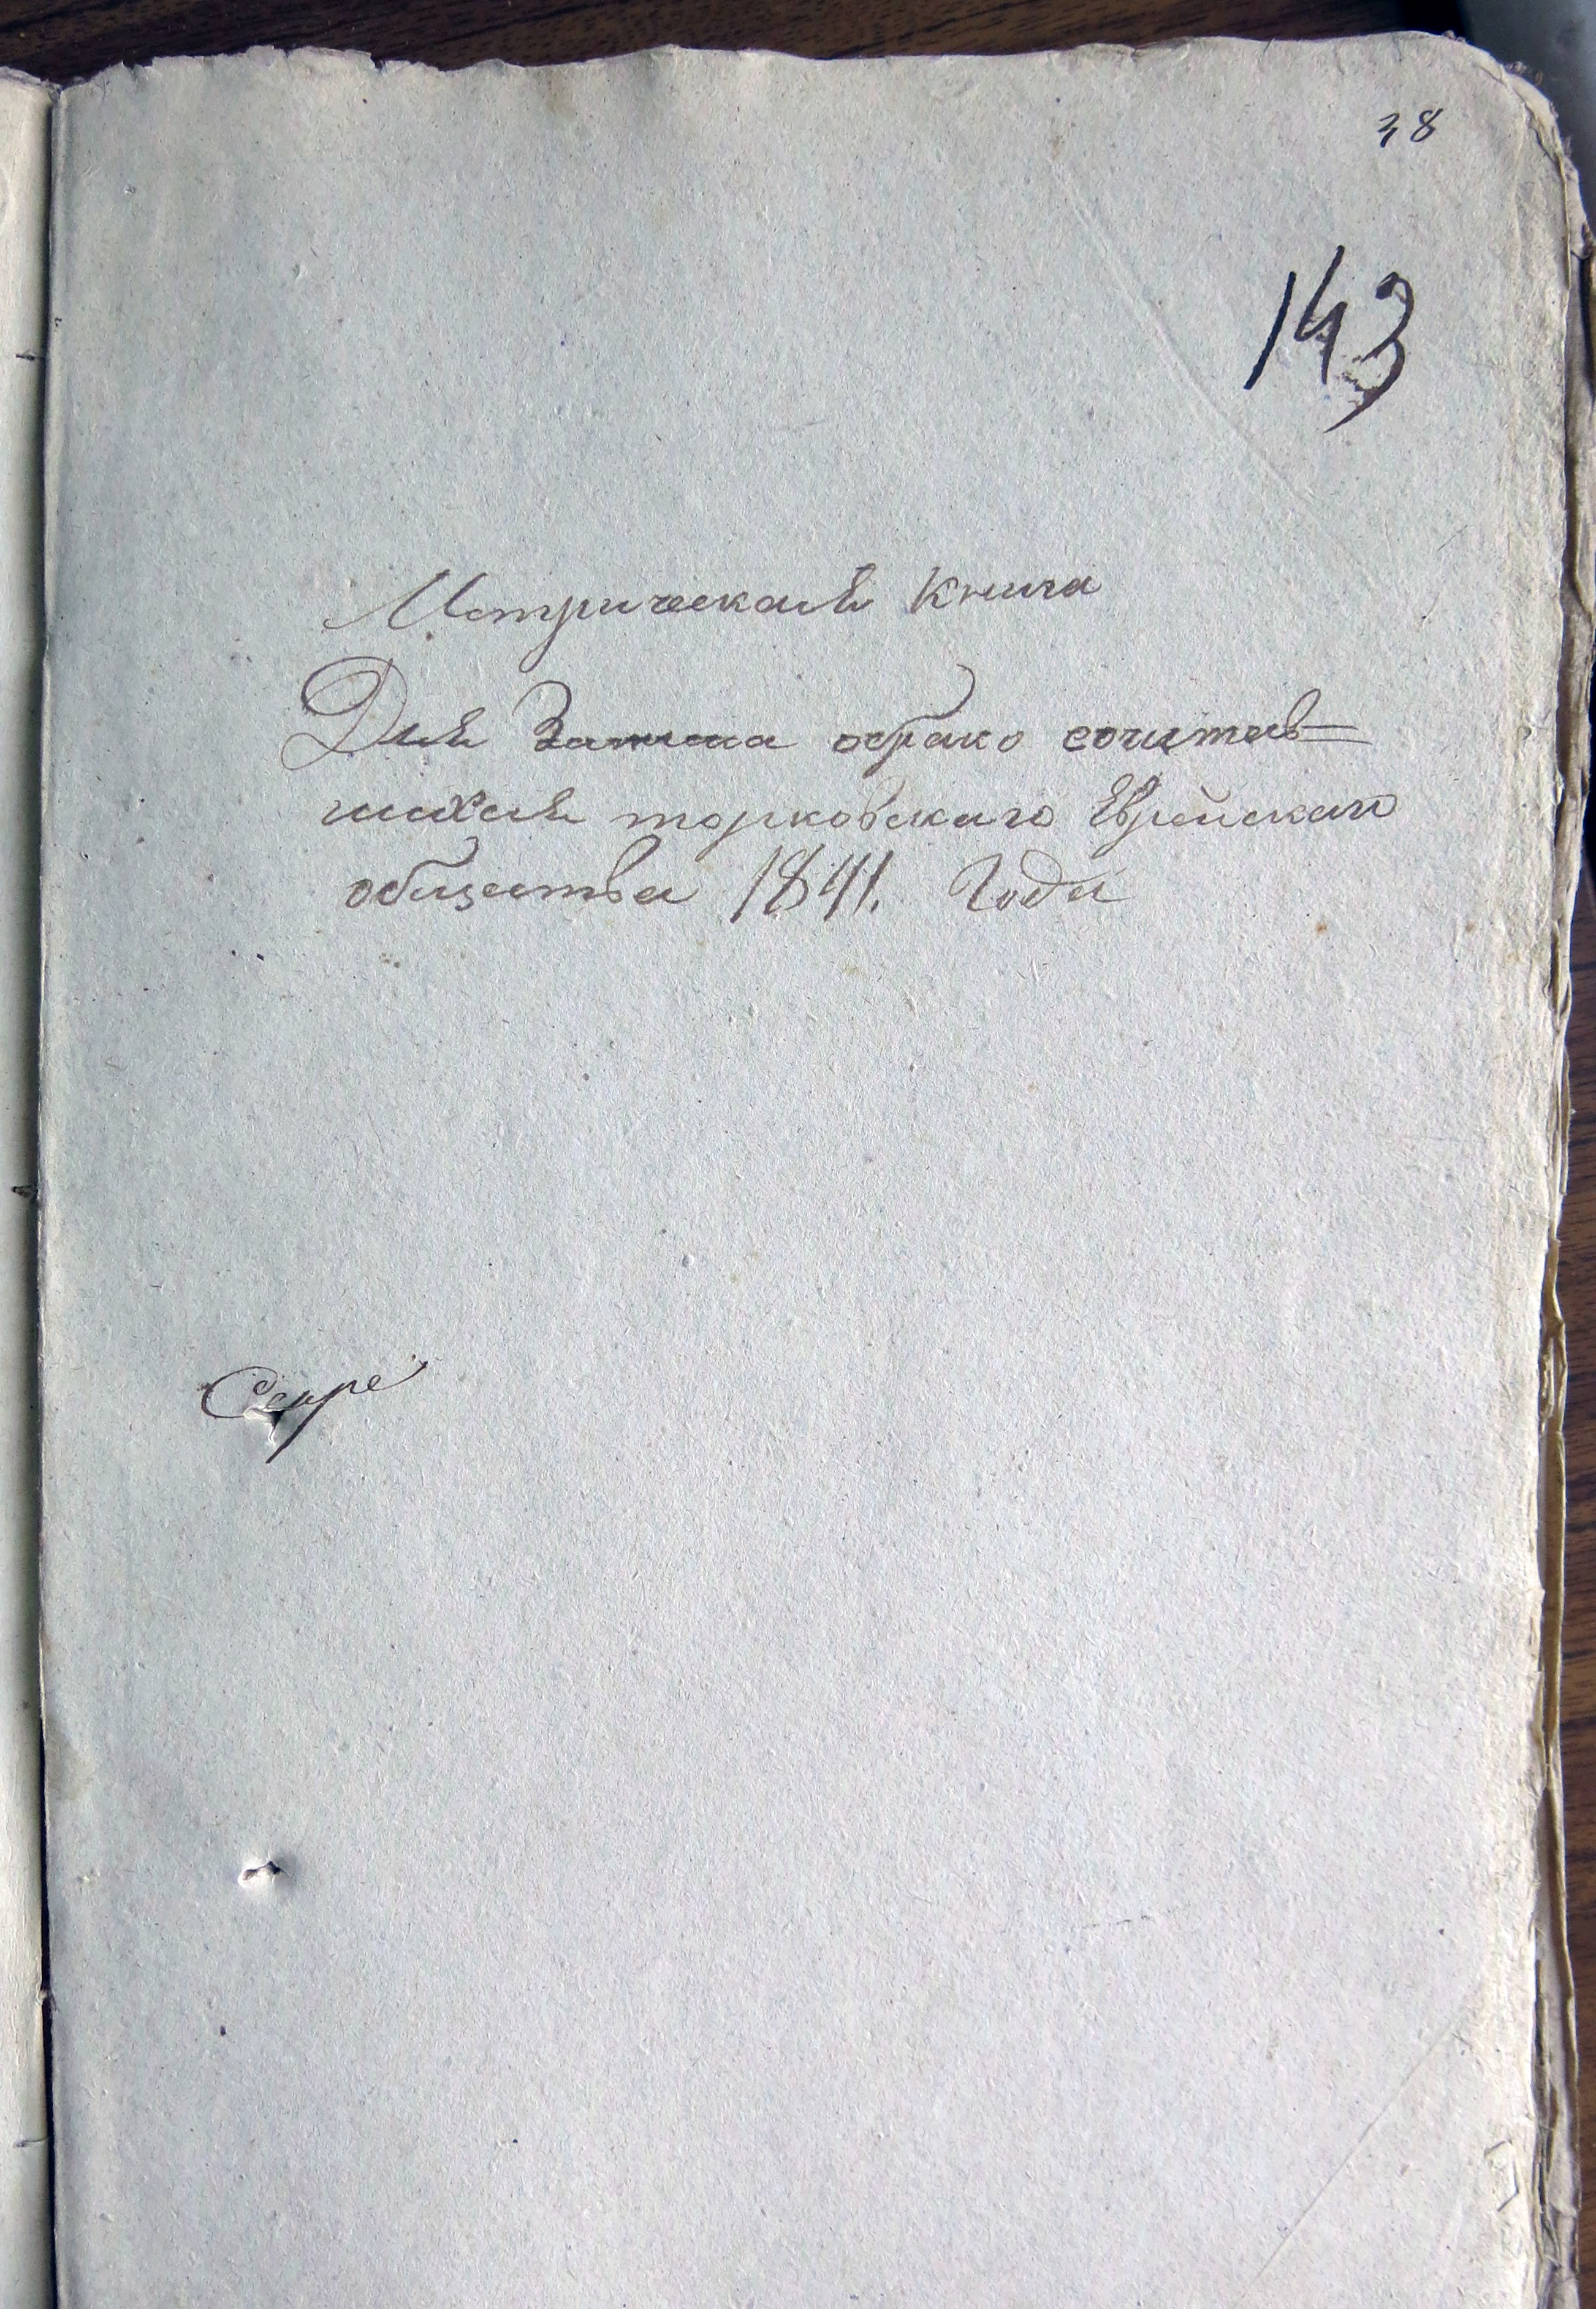 38
143
Метрическая книга
Для записа обрако сочетав-
шихся торковскаго Еврейскаго
общества 1841. Года
Секре